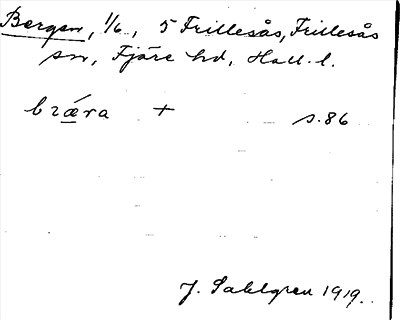 Bergen, 1/6, 5 Frillesås, Frillesås
sn, Fjäre hd, Hall. l.
brǽra + s. 86
J. Sahlgren 1919.